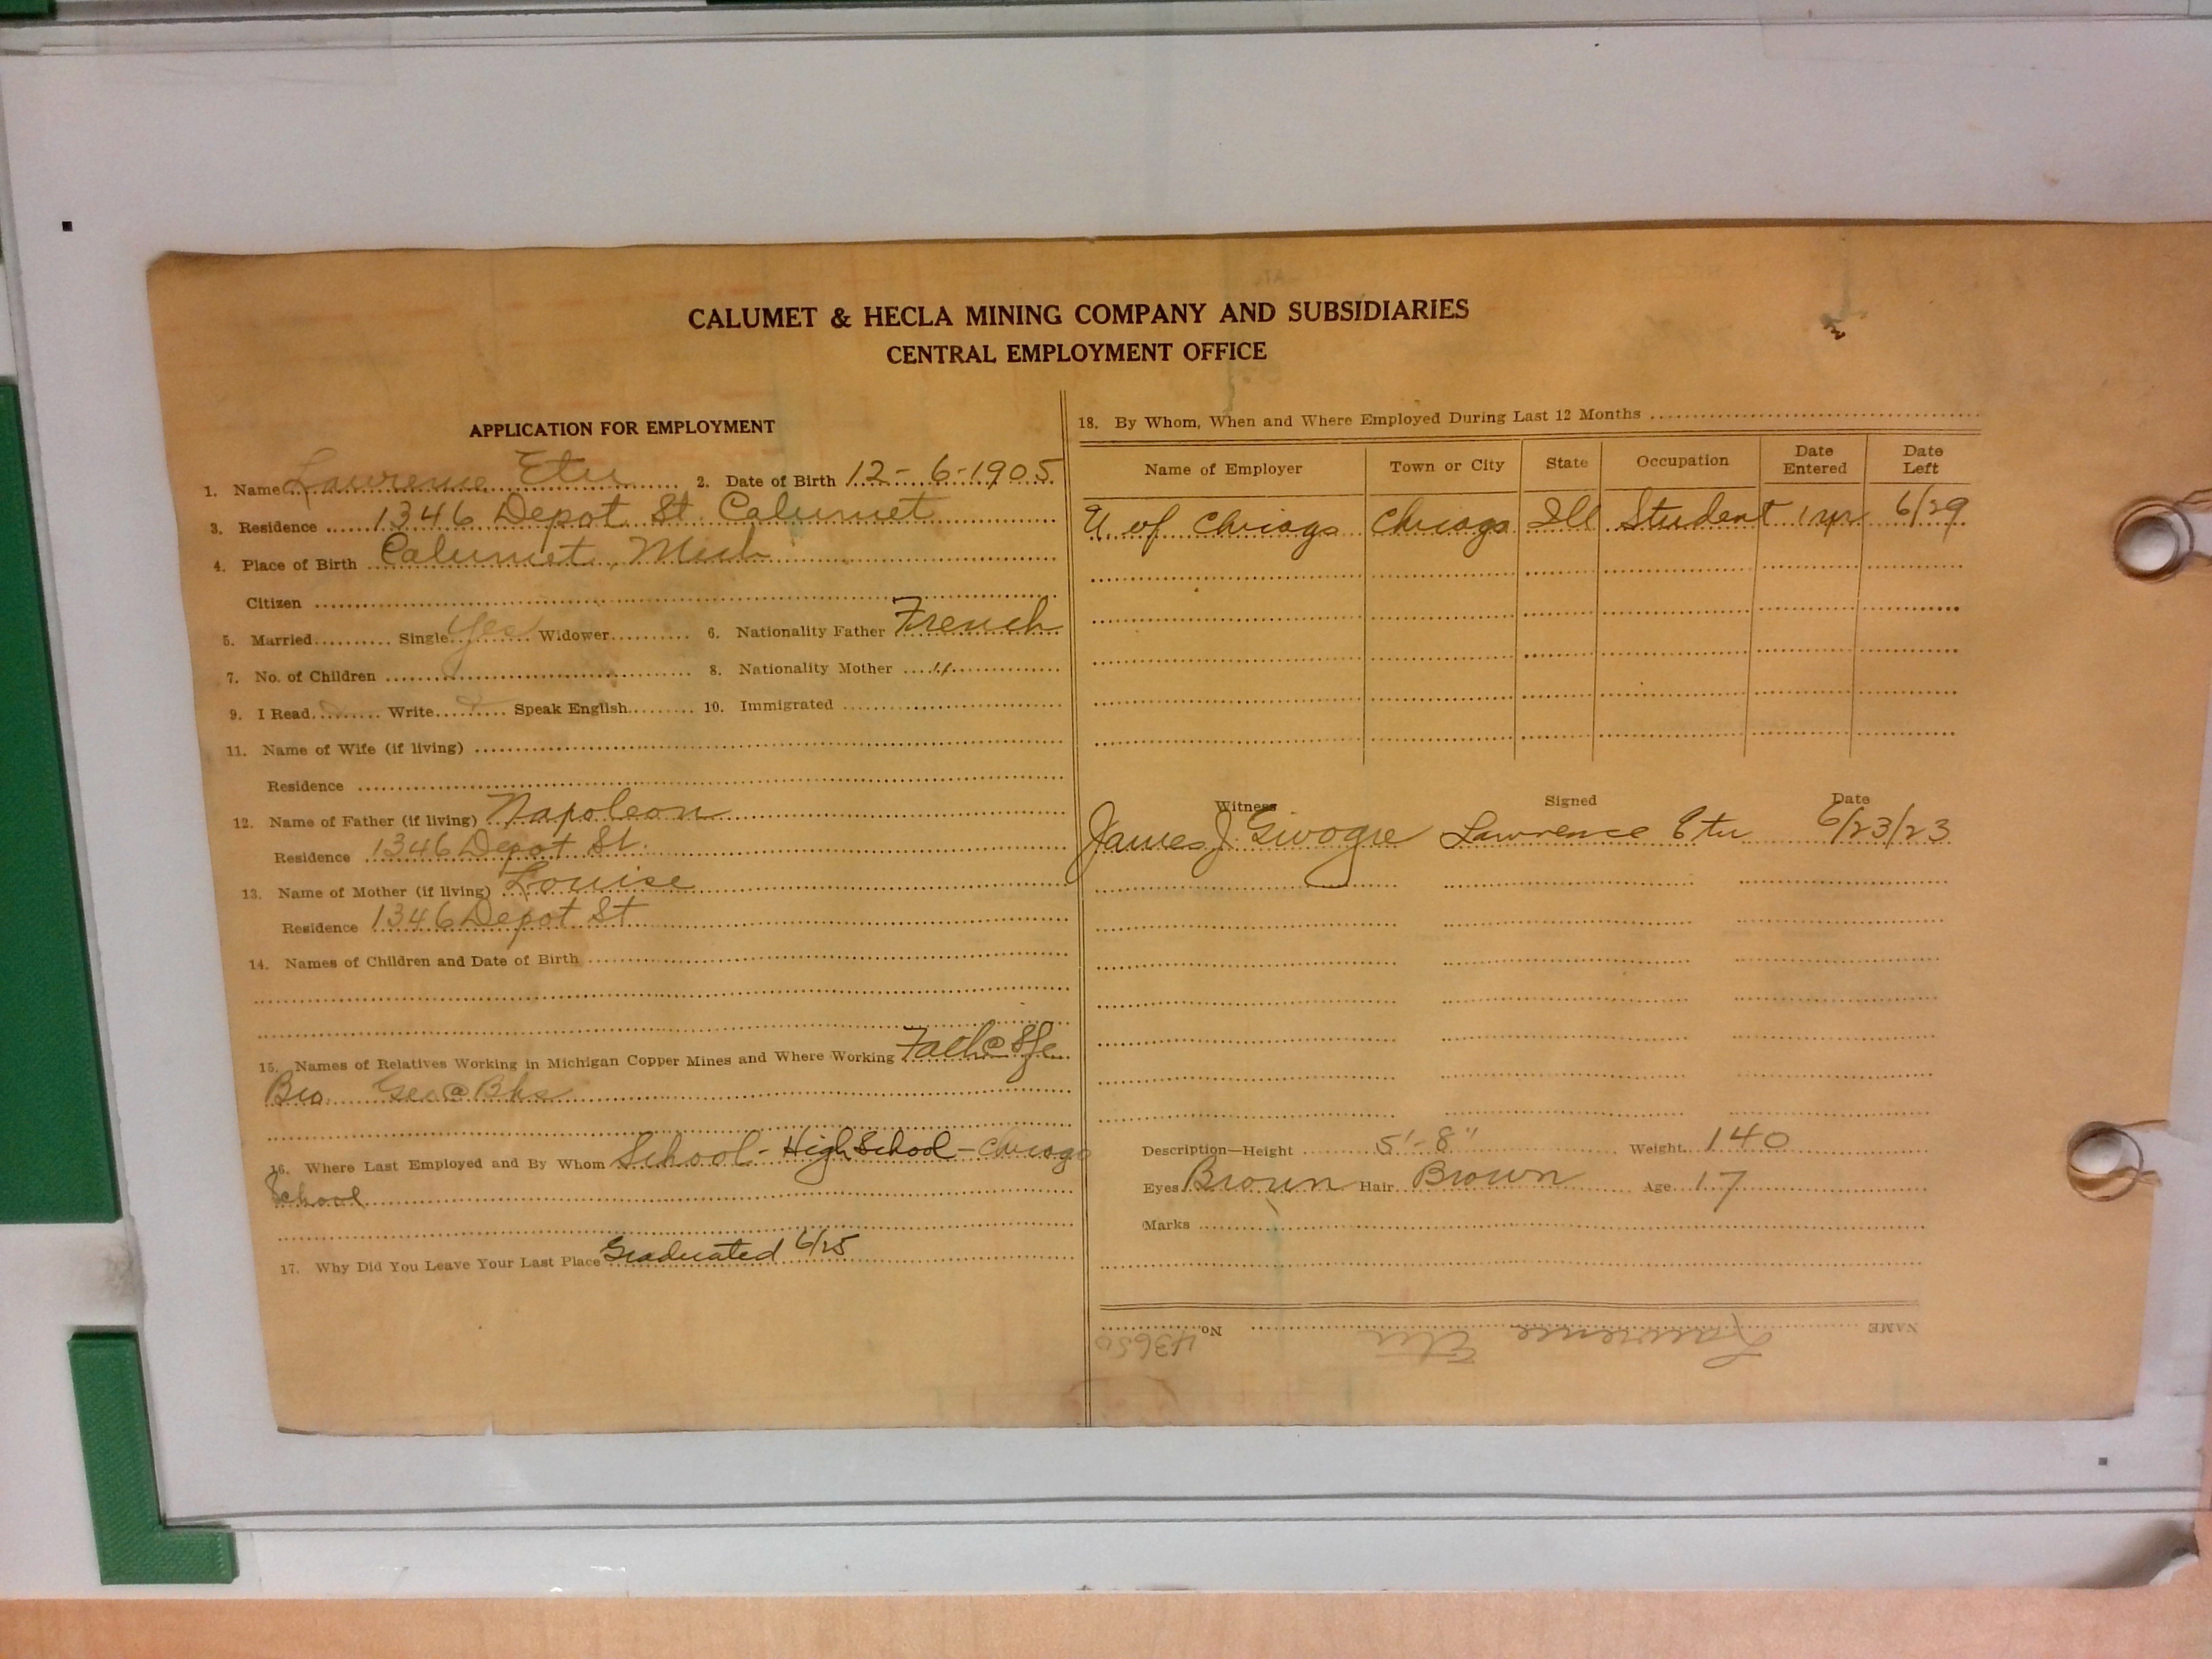 CALUMET & HECLA MINING COMPANY AND SUBSIDIARIES
CENTRAL EMPLOYMENT OFFICE
APPLICATION FOR EMPLOYMENT
1. Name Lawrence Etu 2. Date of Birth 12-6-1905
3. Residence 1346 Depot St. Calumet
4. Place of Birth Calumet, Mich
Citizen
5. Married Single Yes Widower 6. Nationality Father French
7. No. of Children 8. Nationality Mother "
9. I Read Write Speak English 10. Immigrated
11. Name of Wife (if living)
Residence
12. Name of Father (if living) Napoleon
Residence 1346 Depot St.
13. Name of Mother (if living) Louise
Residence 1346 Depot St
14. Names of Children and Date of Birth
15. Names of Relatives Working in Michigan Copper Mines and Where Working Fath @
Bro. Geo @
16. Where Last Employed and By Whom School - High School - Chicago
School
17. Why Did You Leave Your Last Place Graduated 6/25
18. By Whom, When and Where Employed During Last 12 Months
Name of Employer Town or City State Occupation Date Entered Date Left
U. of Chicago Chicago Ill Student 1 yr 6/29
Witness Signed Date
James J. Lawrence Etu 6/23/23
Description—Height 5'-8" Weight 140
Eyes Brown Hair Brown Age 17
Marks
NAME Lawrence Etu No. 43650